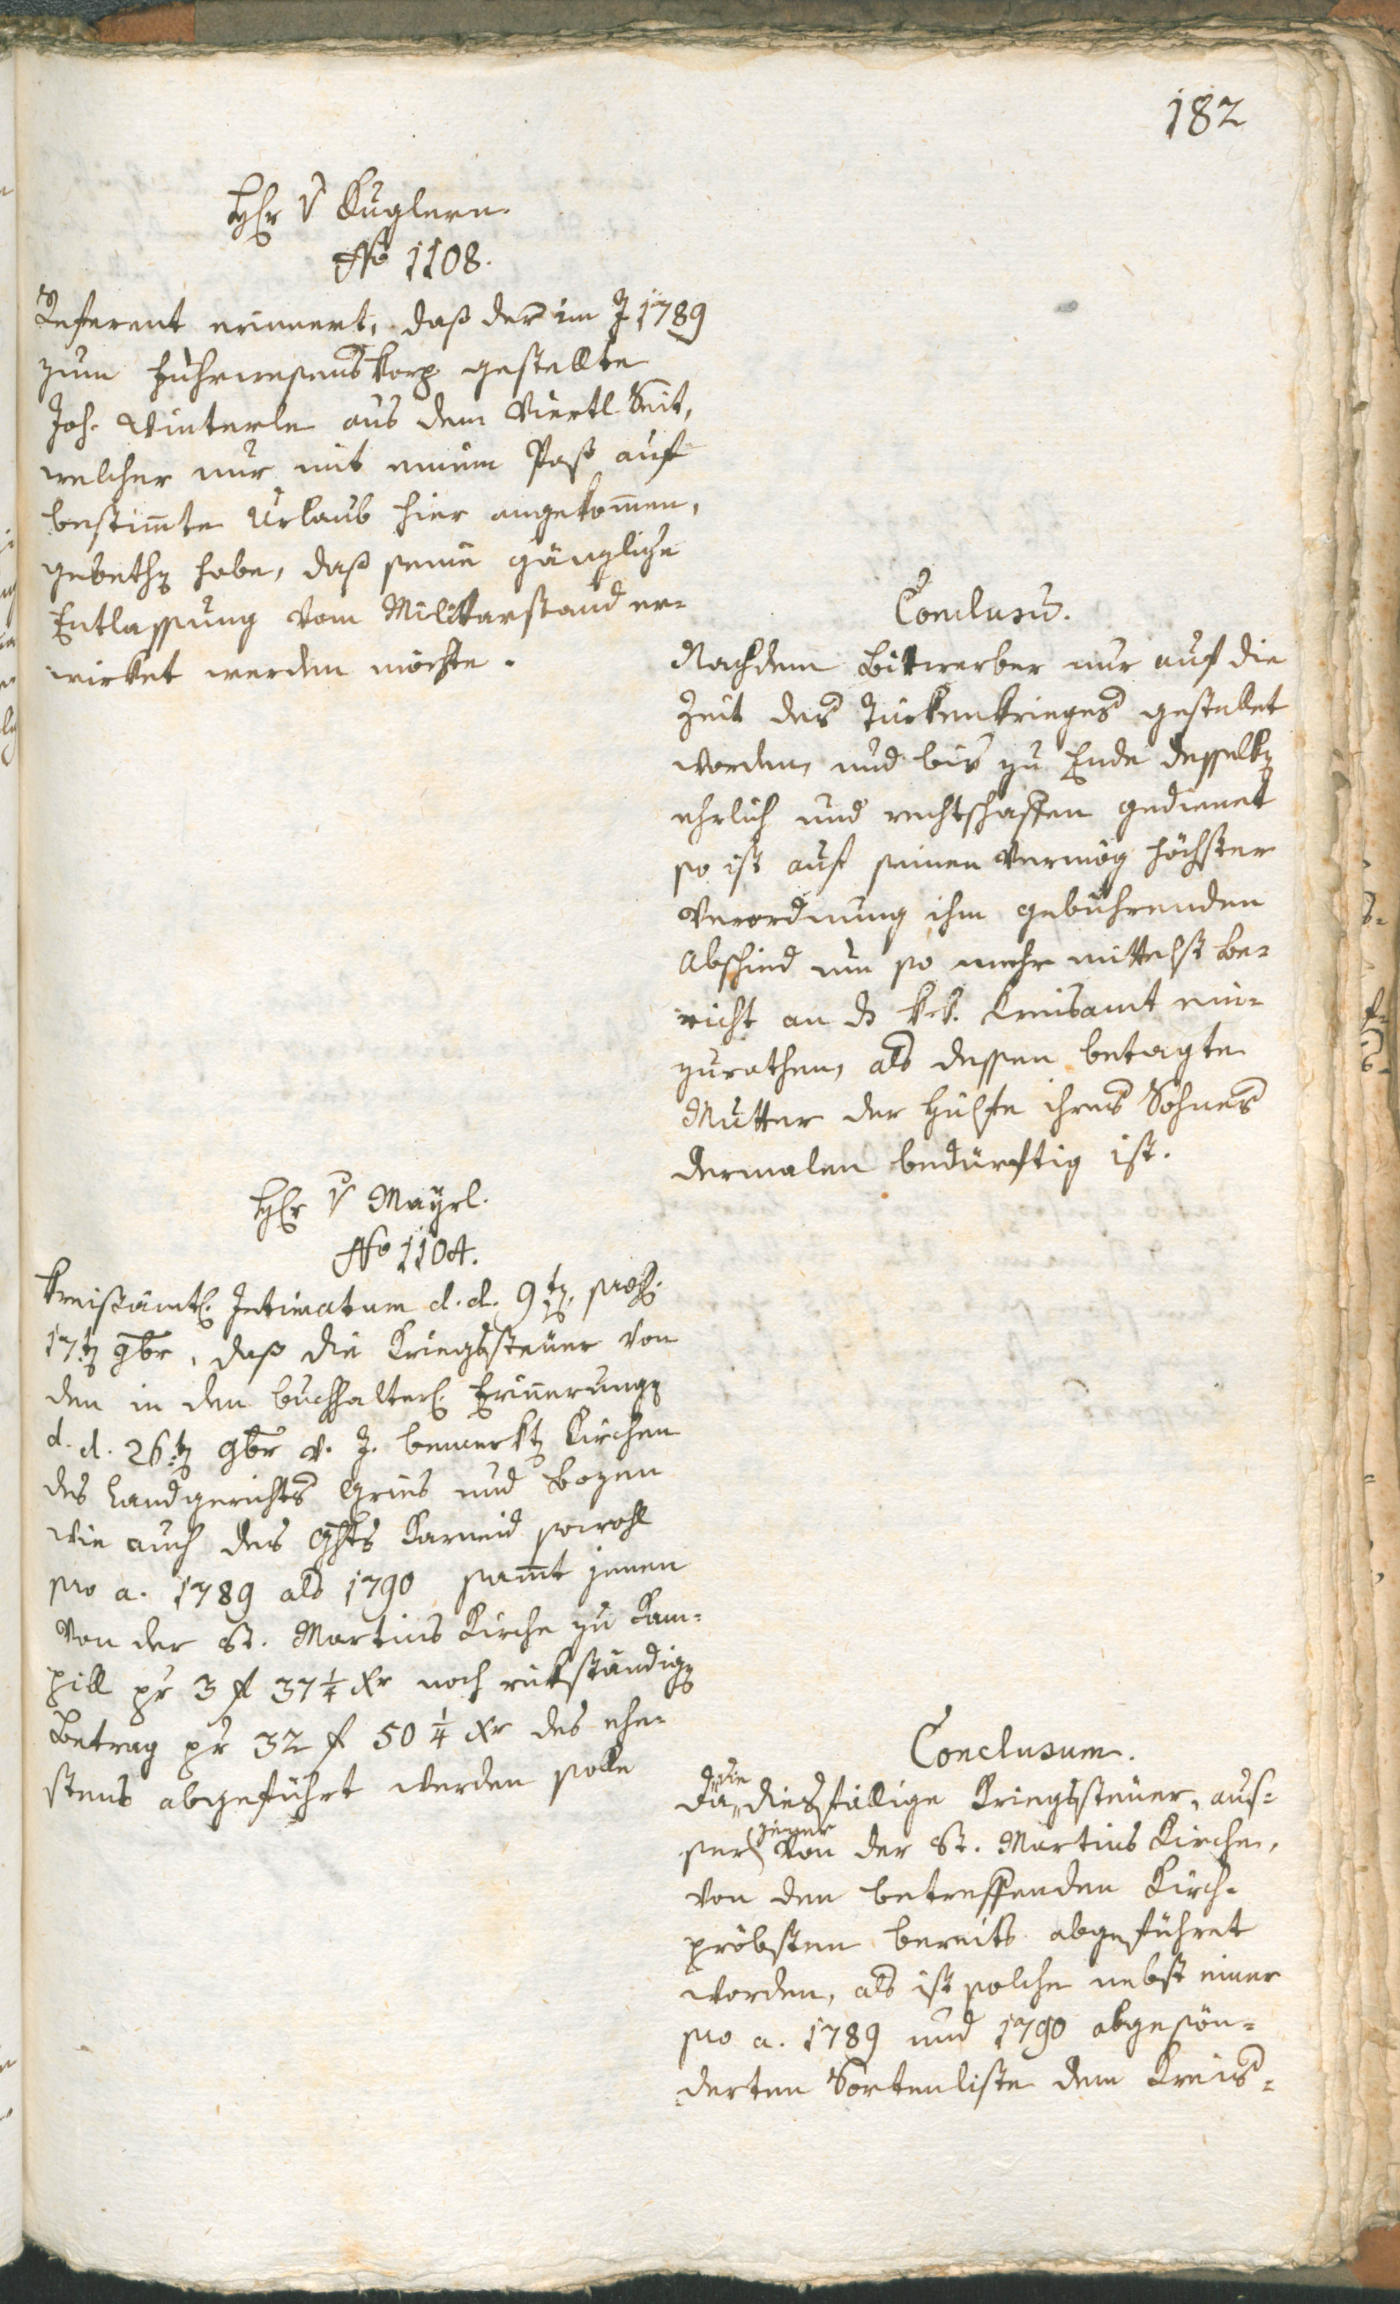 182
Hr v Kuglern.
No 1108.
Referent erinnert, daß der im J 1789
zum Fuhrwesenskorp gestellte
Joh. Winterle aus dem Viertl Seit,
welcher nur mit einem Paß auf
bestimte Urlaub hier angekomen,
gebethen habe, daß seine gänzliche
Entlassung vom Militarstand er-
wirket werden möchte.
Conclusum.
Nachdem Bittwerber nur auf die
Zeit des Türkenkrieges gestellet
worden, und bis zu Ende desselben
ehrlich und rechtschaffen gedienet
so ist auf seinen vermög höchster
Verordnung ihm gebührenden
Abschied um so mehr mittelst Be-
richt an d k. k. Kreisamt ein-
zurathen, als dessen betagte
Mutter der Hülfe ihres Sohnes
dermalen bedürftig ist.
Hr v Mayrl.
No 1104.
Kreisämtl. Intimatum d. d. 9ten, pres.
17ten 9br, daß die Kriegssteuer von
den in den buchhalterl. Erinnerungen
d. d. 26ten 9br v. J. bemerkten Kirchen
des Landgerichts Gries und Bozen
wie auch des Ghts Karneid sowohl
pro a. 1789 als 1790 samt jenen
von der St. Martins Kirche zu Kam-
pill pr 3 f 37 1/4 xr noch rükständigen
Betrag pr 32 f 50 1/4 xr des ehe-
stens abgeführt werden solle
Conclusum.
Da die diesfällige Kriegssteuer, aus-
ser jener von der St. Martins Kirche,
von den betreffenden Kirch-
pröbsten bereits abgeführet
worden, als ist solche nebst einer
pro a. 1789 und 1790 abgesön-
derten Sortenliste dem Kreis-